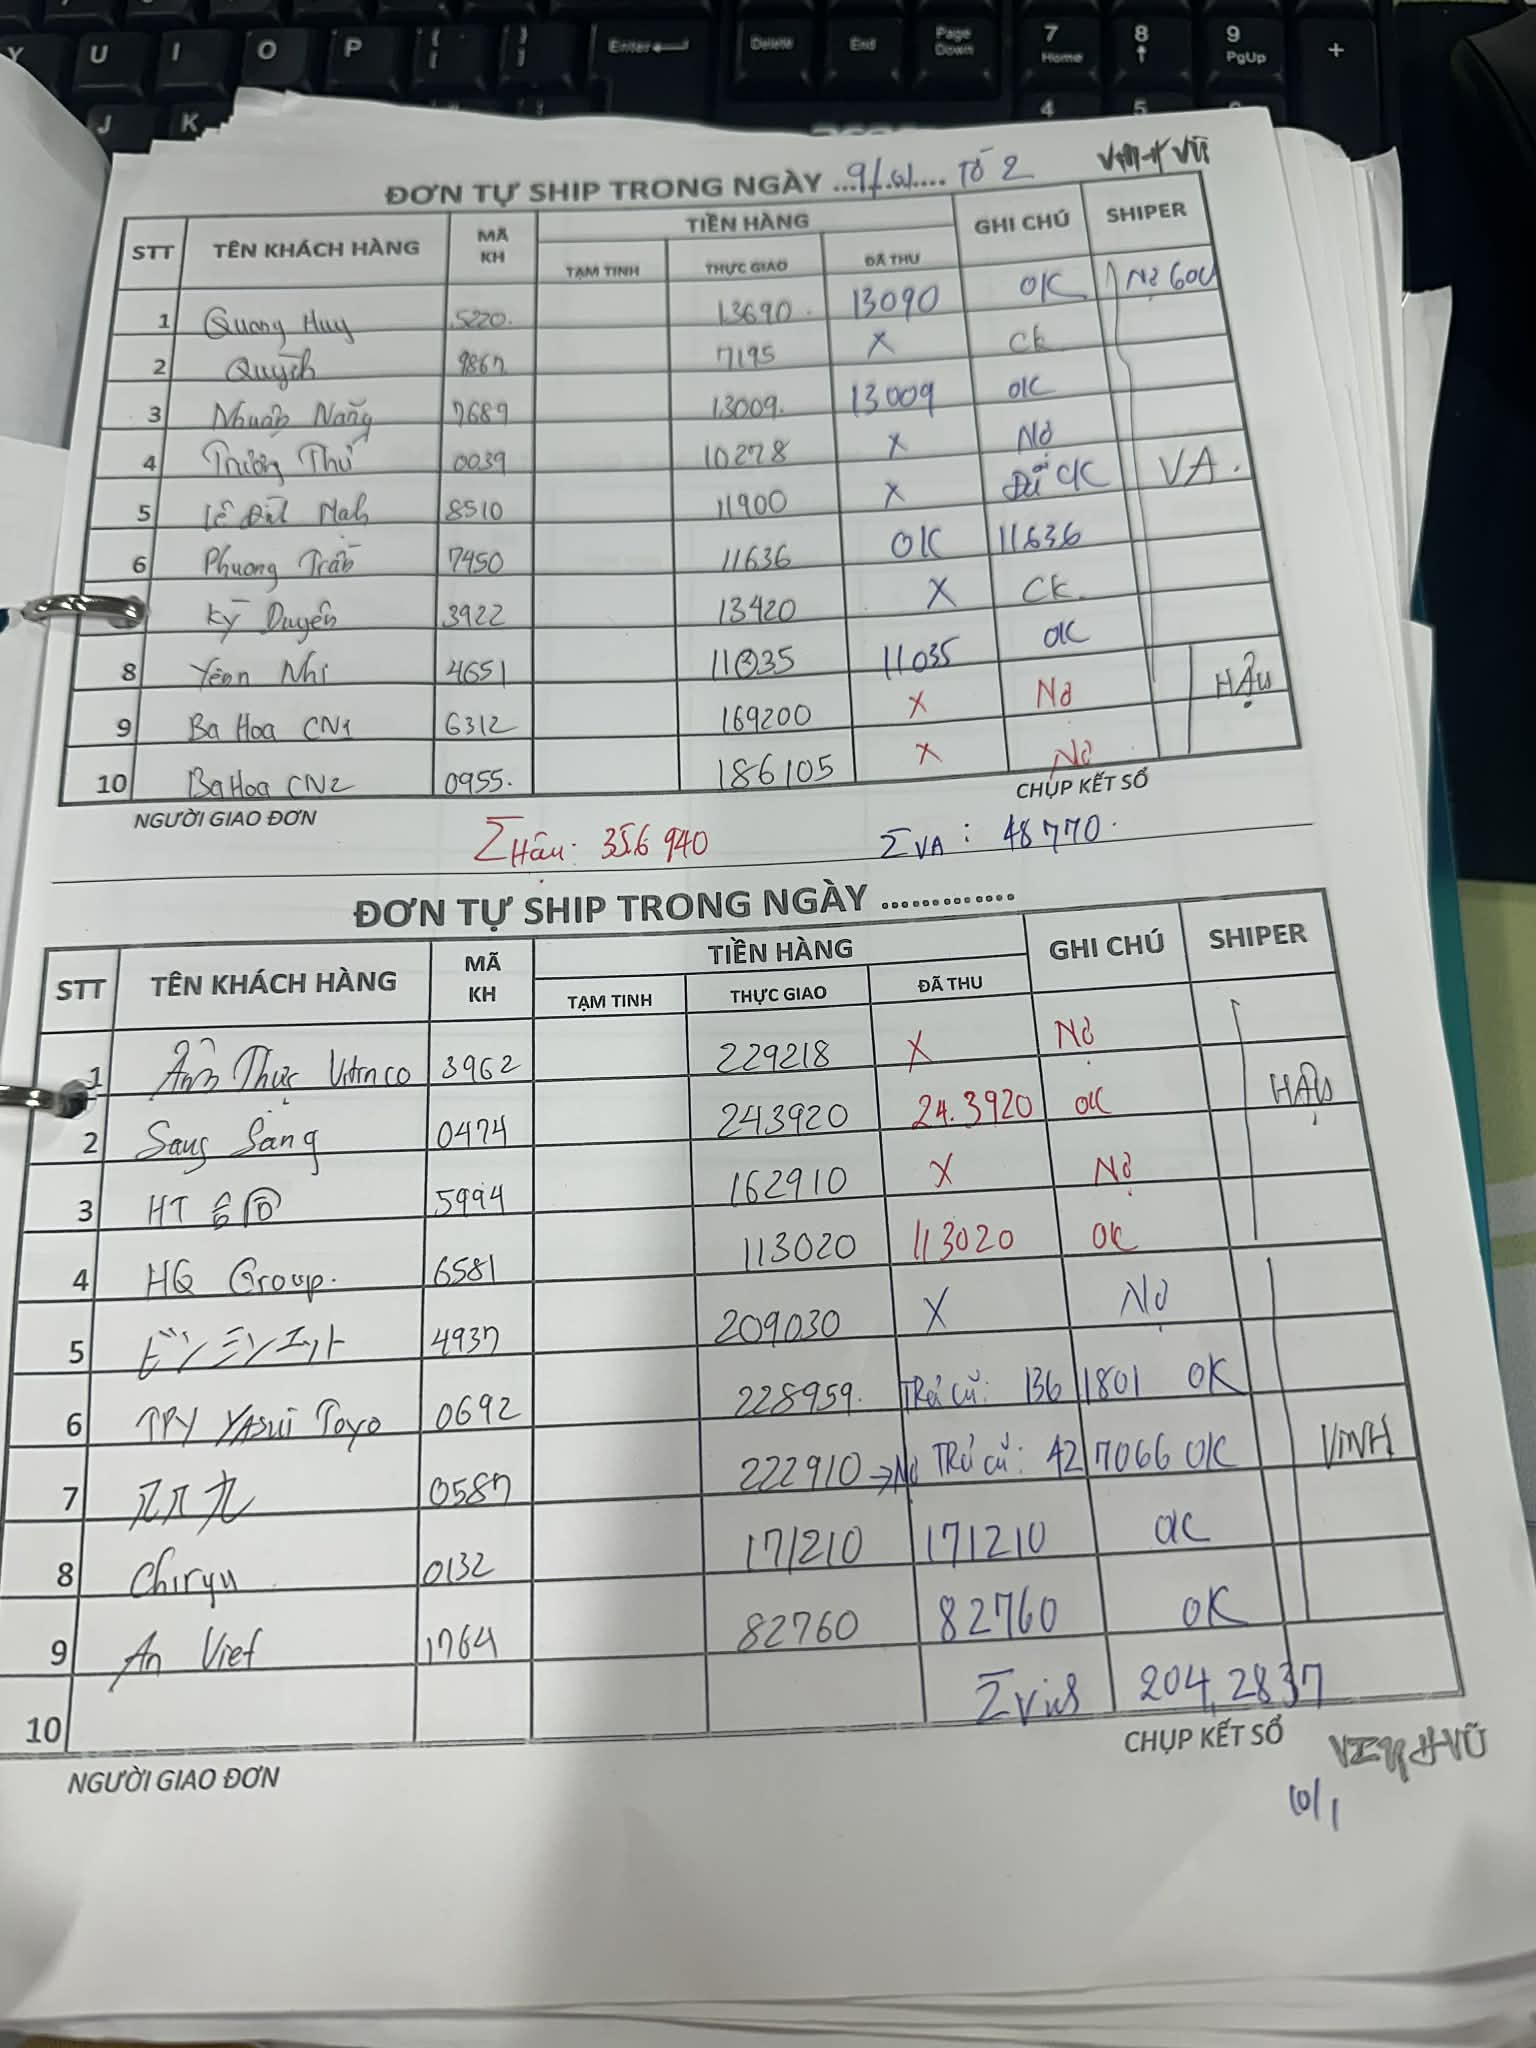 Y U I O P { [ } ] Enter Delete End Page Down 7 Home 8 9 PgUp +
J K 4 5
ĐƠN TỰ SHIP TRONG NGÀY ...9/01.... Tờ 2
STT TÊN KHÁCH HÀNG MÃ KH TIỀN HÀNG GHI CHÚ SHIPER
TẠM TINH THỰC GIAO ĐÃ THU
1 Quang Huy 5220. 13690. 13090 OK Nợ 600
2 Quỳnh 9867 7195 X CK
3 7689 13009. 13009 OK
4 Trường Thư 0039 10278 X Nợ
5 Lê Đức Mạnh 8510 11900 X Đã CK VA.
6 Phương Trần 7450 11636 OK 11636
Kỳ Duyên 3922 13420 X CK.
8 Yến Nhi 4651 11035 11035 OK
9 Ba Hoa CN1 6312 169200 X Nợ HẬU
10 Ba Hoa CN2 0955. 186105 X Nợ
NGƯỜI GIAO ĐƠN CHỤP KẾT SỔ
Σ Hậu: 356940 Σ VA: 48770.
ĐƠN TỰ SHIP TRONG NGÀY .............
STT TÊN KHÁCH HÀNG MÃ KH TIỀN HÀNG GHI CHÚ SHIPER
TẠM TINH THỰC GIAO ĐÃ THU
1 Ẩm Thực 3962 229218 X Nợ
2 Sang Sảng 0474 243920 24.3920 OK HẬU
3 HT 5994 162910 X Nợ
4 HQ Group. 6581 113020 113020 OK
5 ビンミンエット 4937 209030 X Nợ
6 TPY YASUI Toyo 0692 228959. Trả cũ: 1361801 OK
7 0587 222910 → Nợ Trả cũ: 427066 OK VINH
8 Chiryu 0132 171210 171210 OK
9 An Viet 1764 82760 82760 OK
10 Σ Vinh 204,2837
NGƯỜI GIAO ĐƠN CHỤP KẾT SỔ
10/1